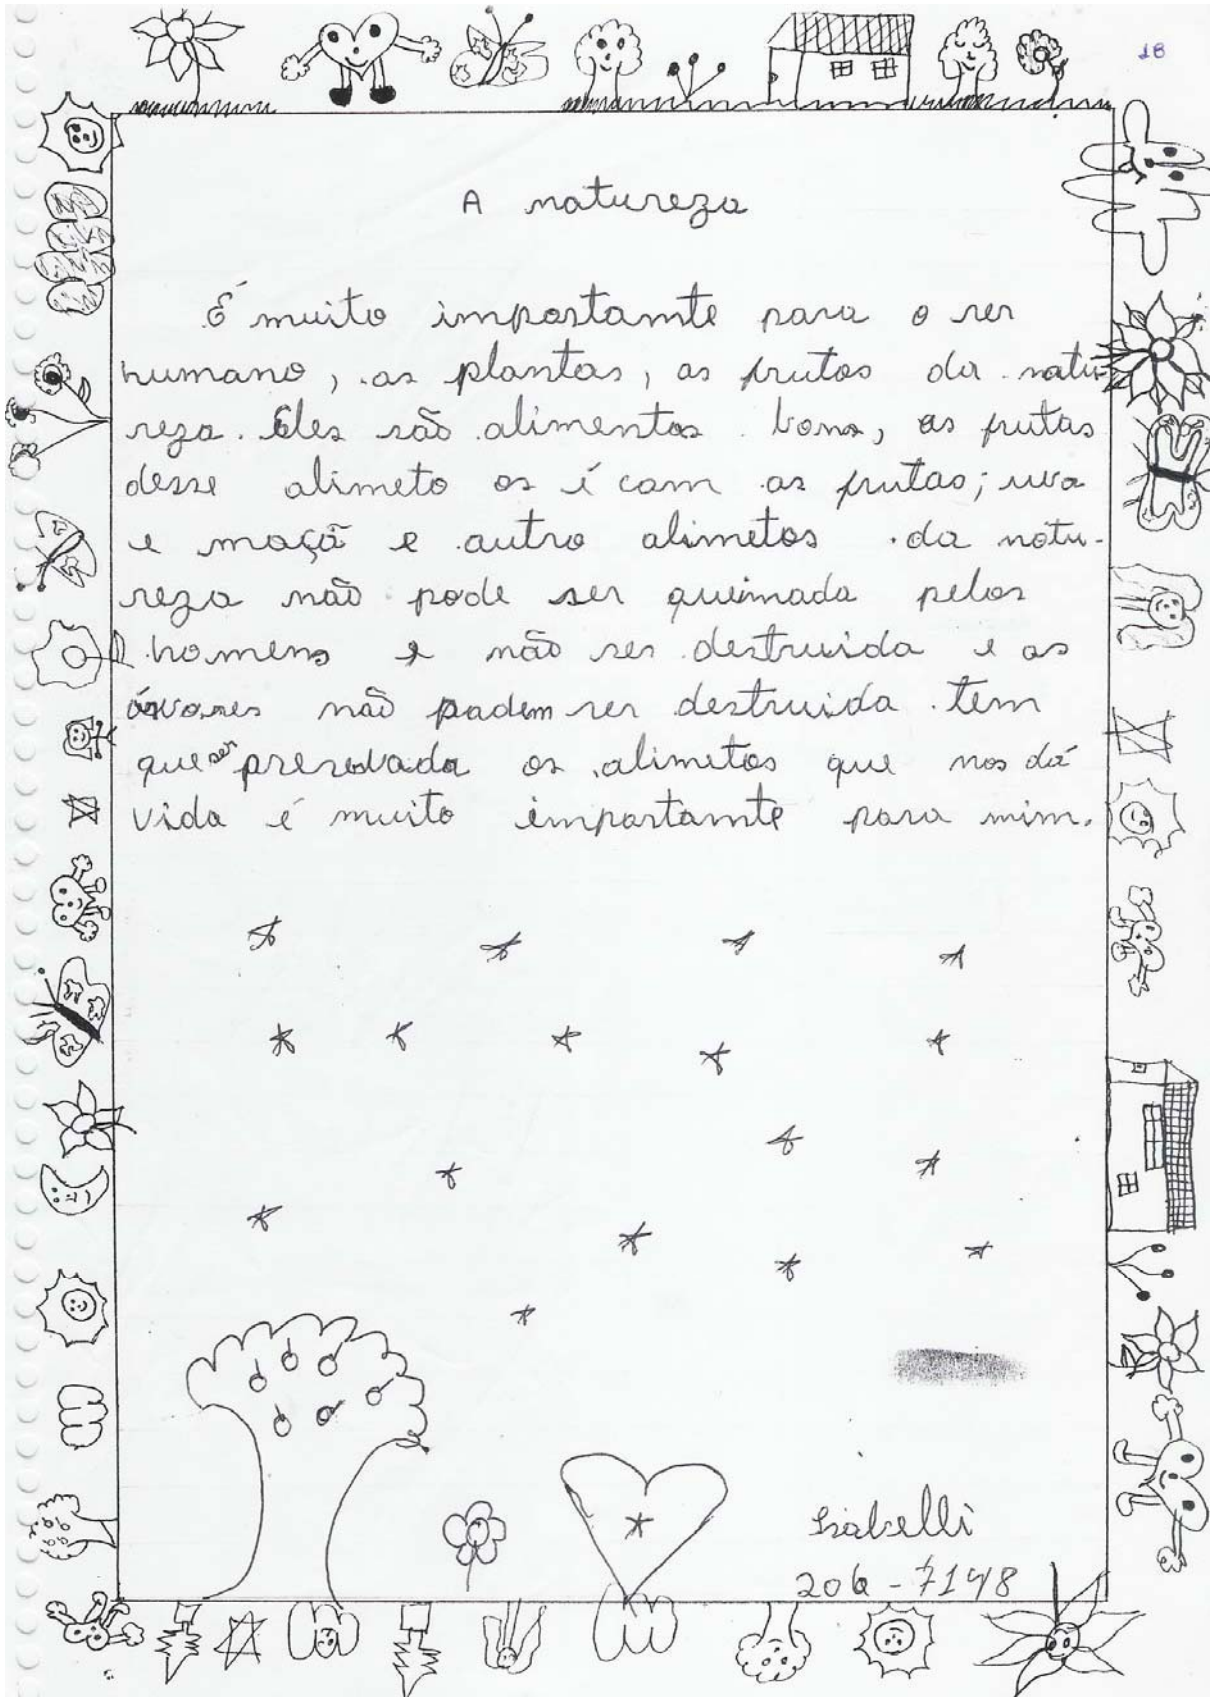 18
A natureza
É muito importamte para o ser
humano, as plantas, as frutos da natu-
reza. Eles são alimentos bons, as frutas
desse alimeto os é com as frutas; uva
e maçã e autro alimetos da natu-
reza não pode ser queimada pelos
homens e não ser destruida e as
não padem ser destruida tem
que ser os alimetos que nos dá
vida é muito importamte para mim.
Isabelli
206-7148